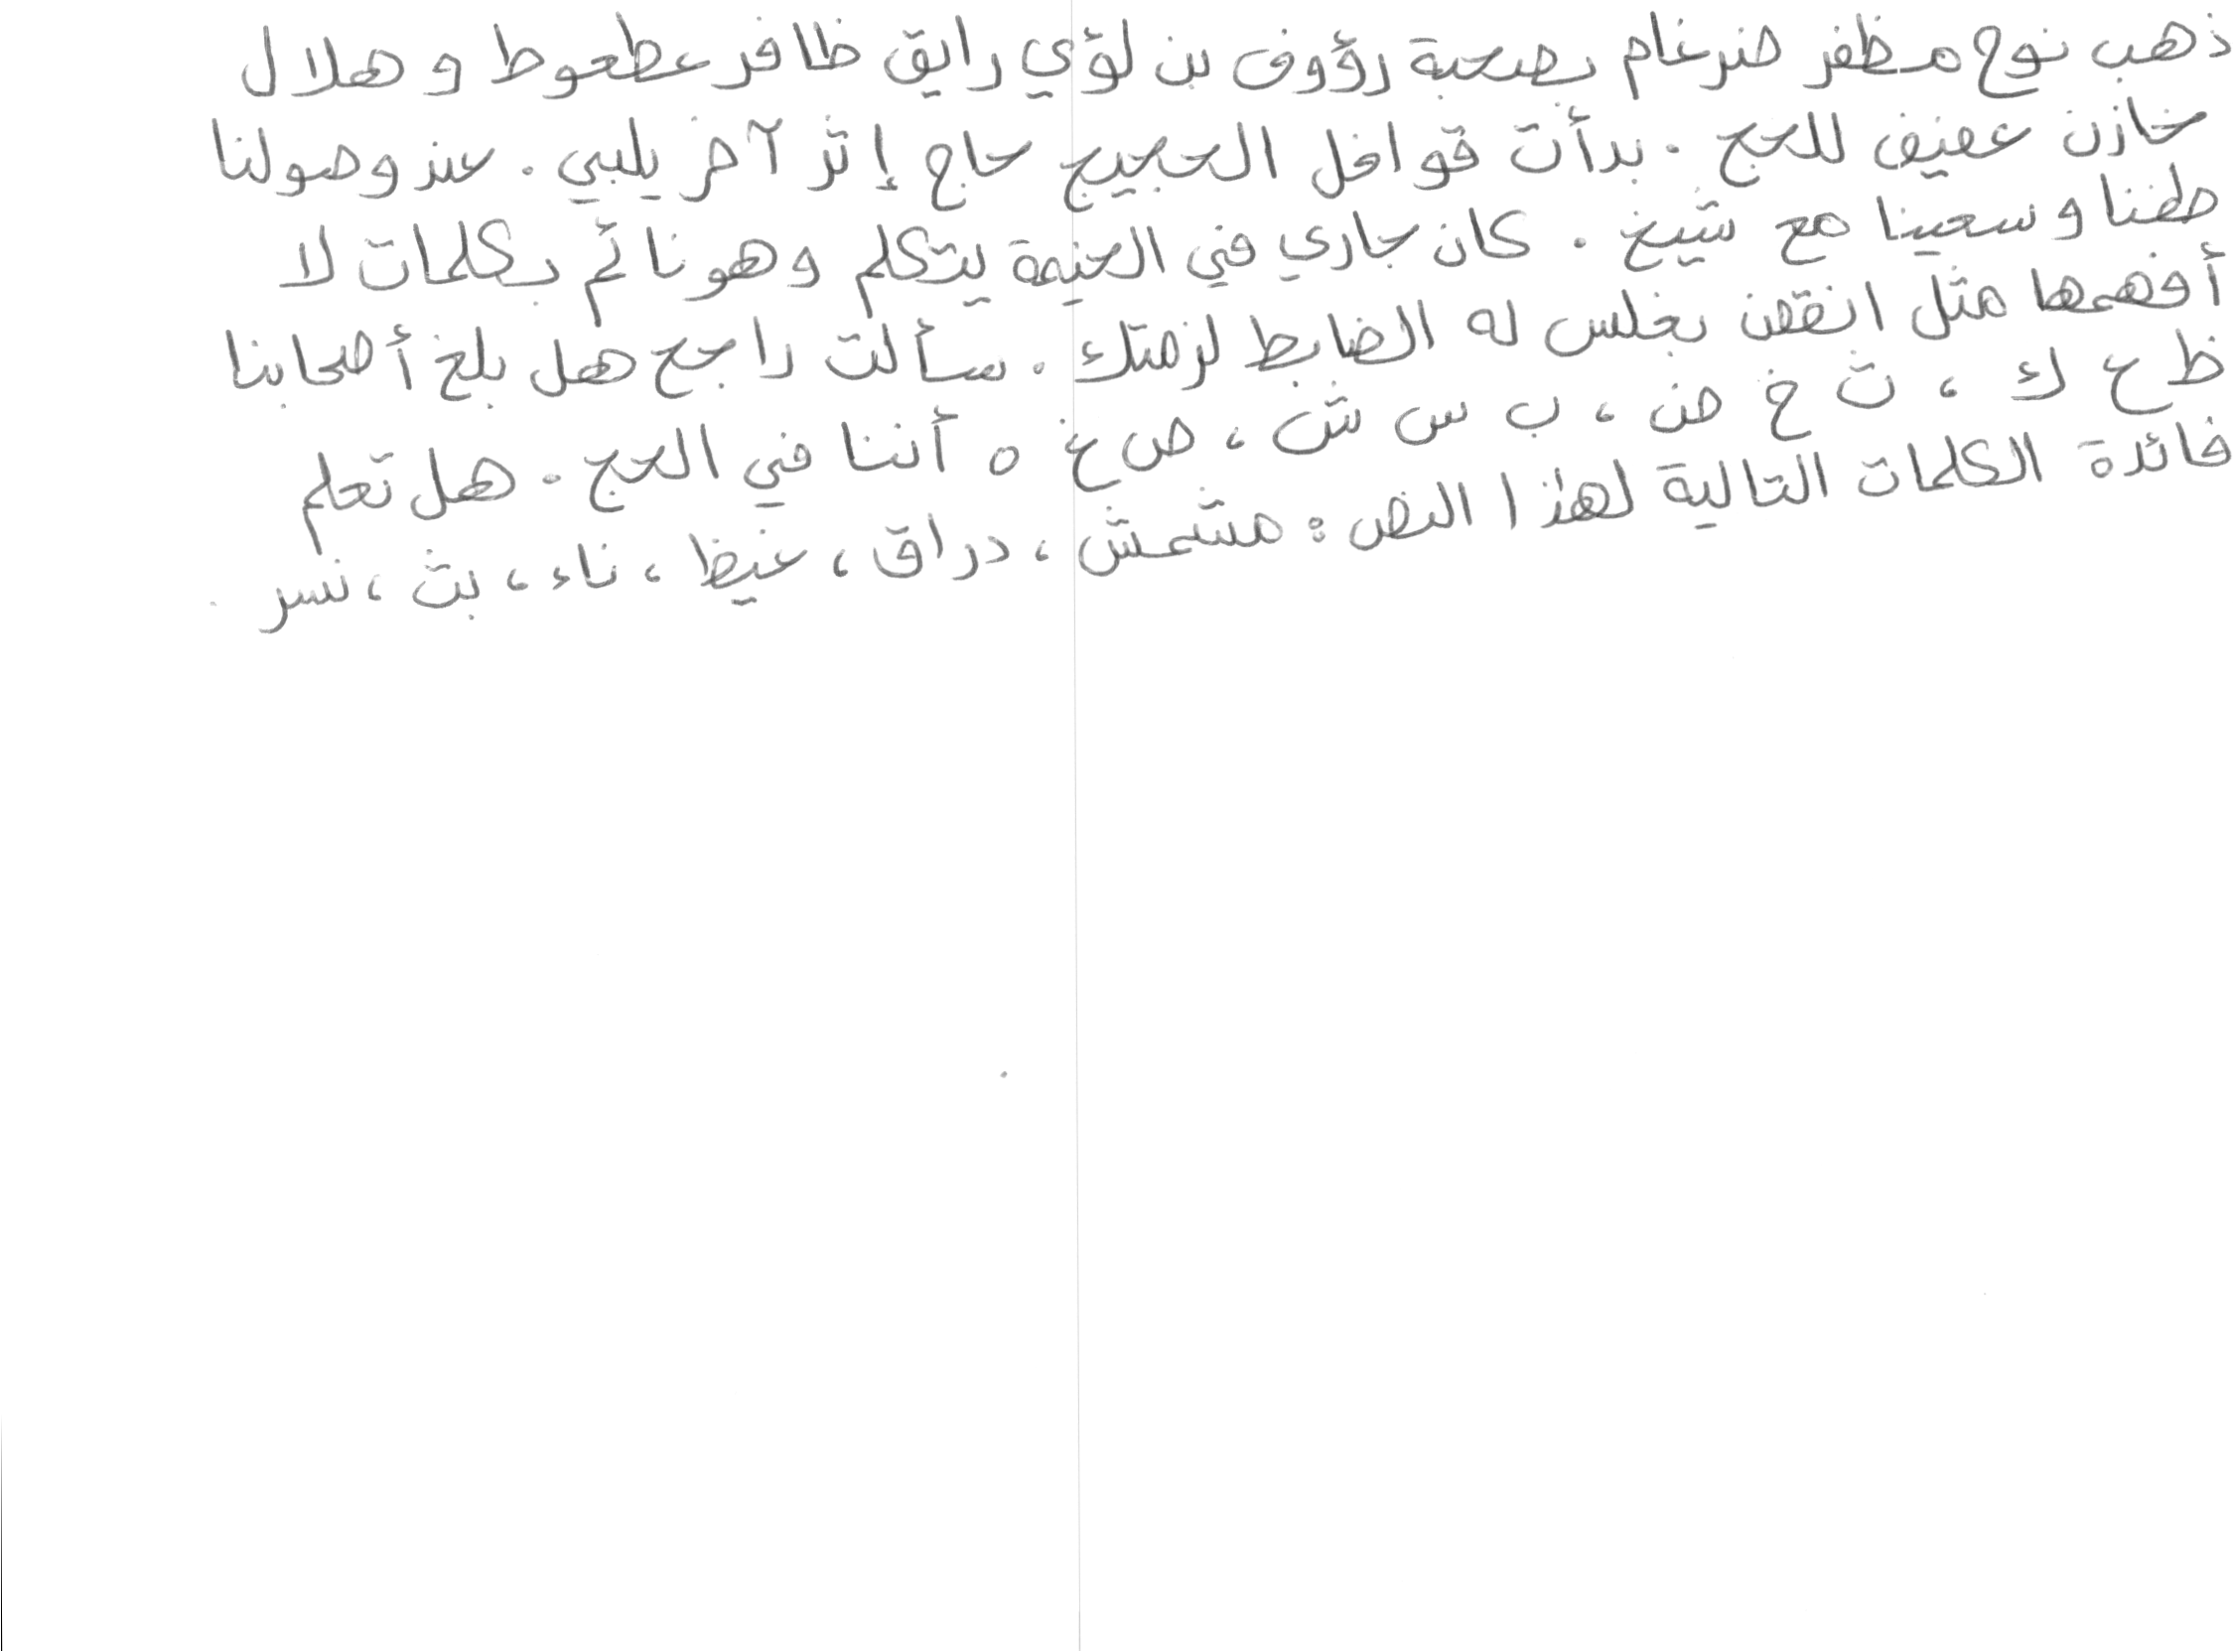 ذهب نوح مظفر ضرغام بصحبة رؤوف بن لؤي رايق ظافر عطعوط و هلال
خازن عفيف للحج . بدأت قوافل الحجيج حاج إثر آخر يلبي . عند وصولنا
طفنا وسعينا مع شيخ . كان جاري في الخيمة يتكلم وهو نائم بكلمات لا
أفهمها مثل انقض بغلس له الضابط لزمتك . سألت راجح هل بلغ أصحابنا
ظ ح ك ، ث خ ض ، ب س ش ، ص غ ه أننا في الحج . هل تعلم
فائدة الكلمات التالية لهذا النص : مشمش ، دراق ، غيظ ، ناء ، بث ، نسر